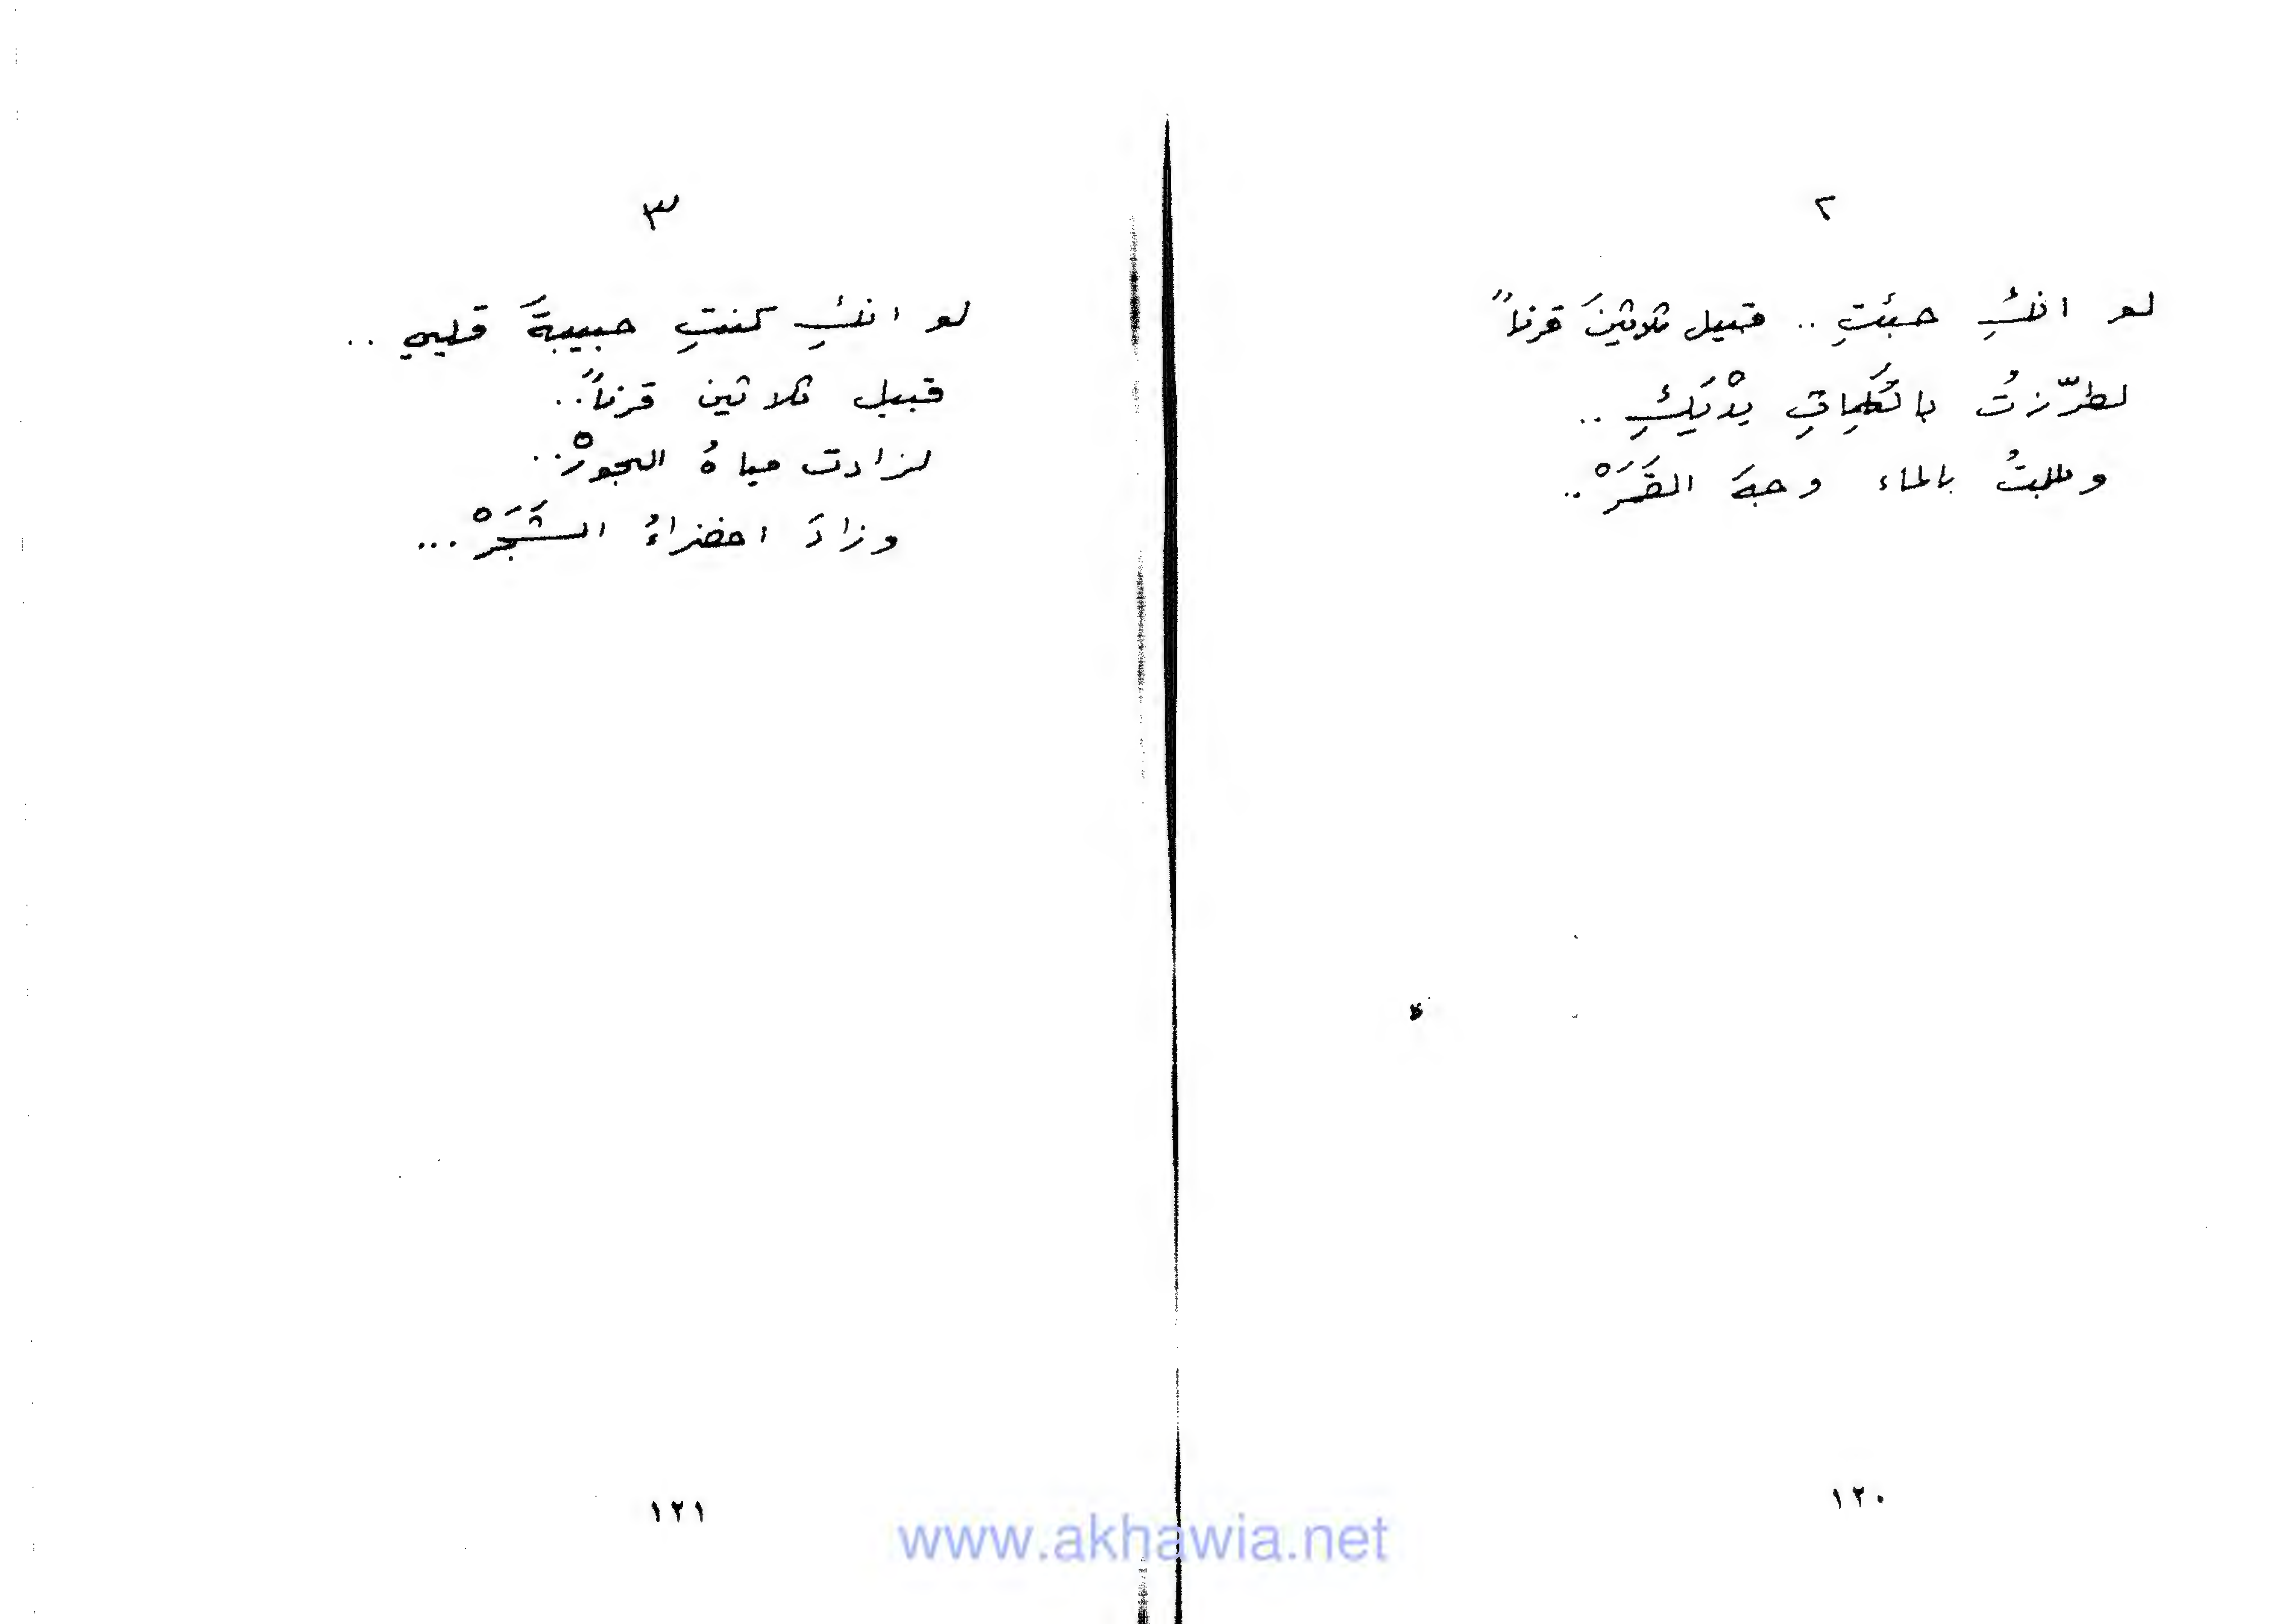 ٢
لو انكِ جئتِ .. قبيل ثلاثينَ قرناً
لطرّزتُ بالكَلِماتِ يدْيَكِ ..
وبللتُ بالماء وجهَ القَمَرْ ..
١٢٠
٣
لو انكِ كنتِ حبيبةَ قلبي ..
قبيل ثلاثين قرناً ..
لزادت مياهُ البحورْ ..
وزادَ اخضرارُ الشَجَرْ ...
١٢١
www.akhawia.net